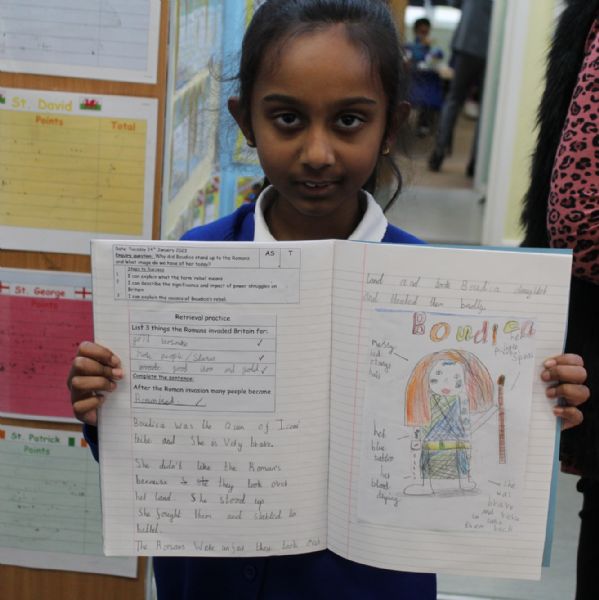 St. David
Points Total
St. George
Points
St. Patrick
Points
Date: Tuesday 24th January 2023
Enquiry question: Why did Boudica stand up to the Romans
and what image do we have of her today?
AS T
Steps to Success
1 I can explain what the term 'rebel' means
2 I can describe the significance and impact of power struggles on
Britain
3 I can explain the
of Boudica's rebel.
Retrieval practice
List 3 things the Romans invaded Britain for:
people / Slaves
good and gold
Complete the sentence:
After the Roman invasion many people became
Romanised.
Boudica was the Queen of Iceni
tribe and She is Very brave.
She didn't like the Roman's
because they took over
her land She stood up
She fought them and started to
battel.
The Romans were unfair they took our
land and took Boudica daughter
and treated them badly.
Boudica
Messy
red
hair
her
spear
her
blue
her
blood
She
was
brave
and